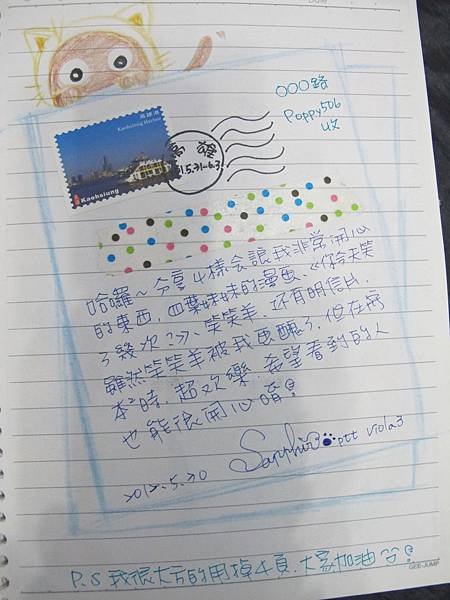 Date
○○○路
Poppy506
收
高雄港
Kaohsiung Harbor
Kaohsiung
高雄
哈囉~分享4樣会讓我非常開心
的東西,四葉妹妹的漫畫、《你今天笑
了幾次?》、笑笑羊、还有明信片,
雖然笑笑羊被我画醜了,但在寫
本本時,超欢樂,希望看到的人
也能很開心唷!
Sapphire ptt viola3
2012.5.30
GEE-JUMP
P.S 我很大方的用掉4頁,大家加油